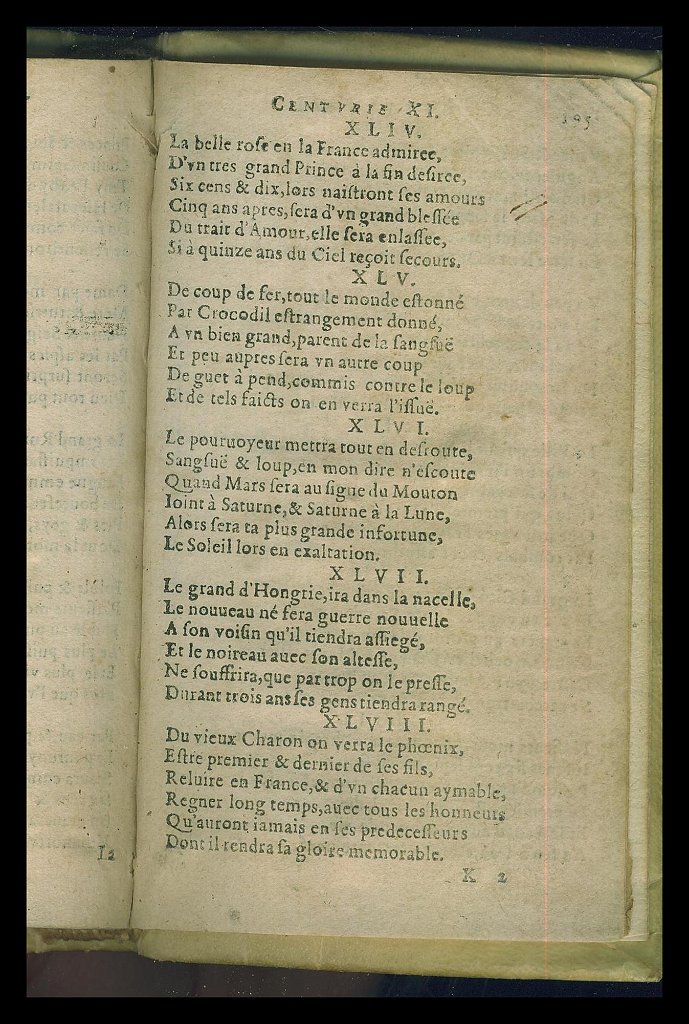 CENTVRIE XI.
195
XLIV.
La belle rose en la France admiree,
D'vn tres grand Prince à la fin desiree,
Six cens & dix, lors naistront ses amours
Cinq ans apres, sera d'vn grand blessée
Du trait d'Amour, elle sera enlassee,
Si à quinze ans du Ciel reçoit secours.
XLV.
De coup de fer, tout le monde estonné
Par Crocodil estrangement donné,
A vn bien grand, parent de la sangsuë
Et peu aupres sera vn autre coup
De guet à pend, commis contre le loup
Et de tels faicts on en verra l'issuë.
XLVI.
Le pouruoyeur mettra tout en desroute,
Sangsuë & loup, en mon dire n'escoute
Quand Mars sera au signe du Mouton
Ioint à Saturne, & Saturne à la Lune,
Alors sera ta plus grande infortune,
Le Soleil lors en exaltation.
XLVII.
Le grand d'Hongrie, ira dans la nacelle,
Le nouueau né fera guerre nouuelle
A son voisin qu'il tiendra assiegé,
Et le noireau auec son altesse,
Ne souffrira, que par trop on le presse,
Durant trois ans ses gens tiendra rangé.
XLVIII.
Du vieux Charon on verra le phœnix,
Estre premier & dernier de ses fils,
Reluire en France, & d'vn chacun aymable,
Regner long temps, auec tous les honneurs
Qu'auront iamais en ses predecesseurs
Dont il rendra sa gloire memorable.
K 2